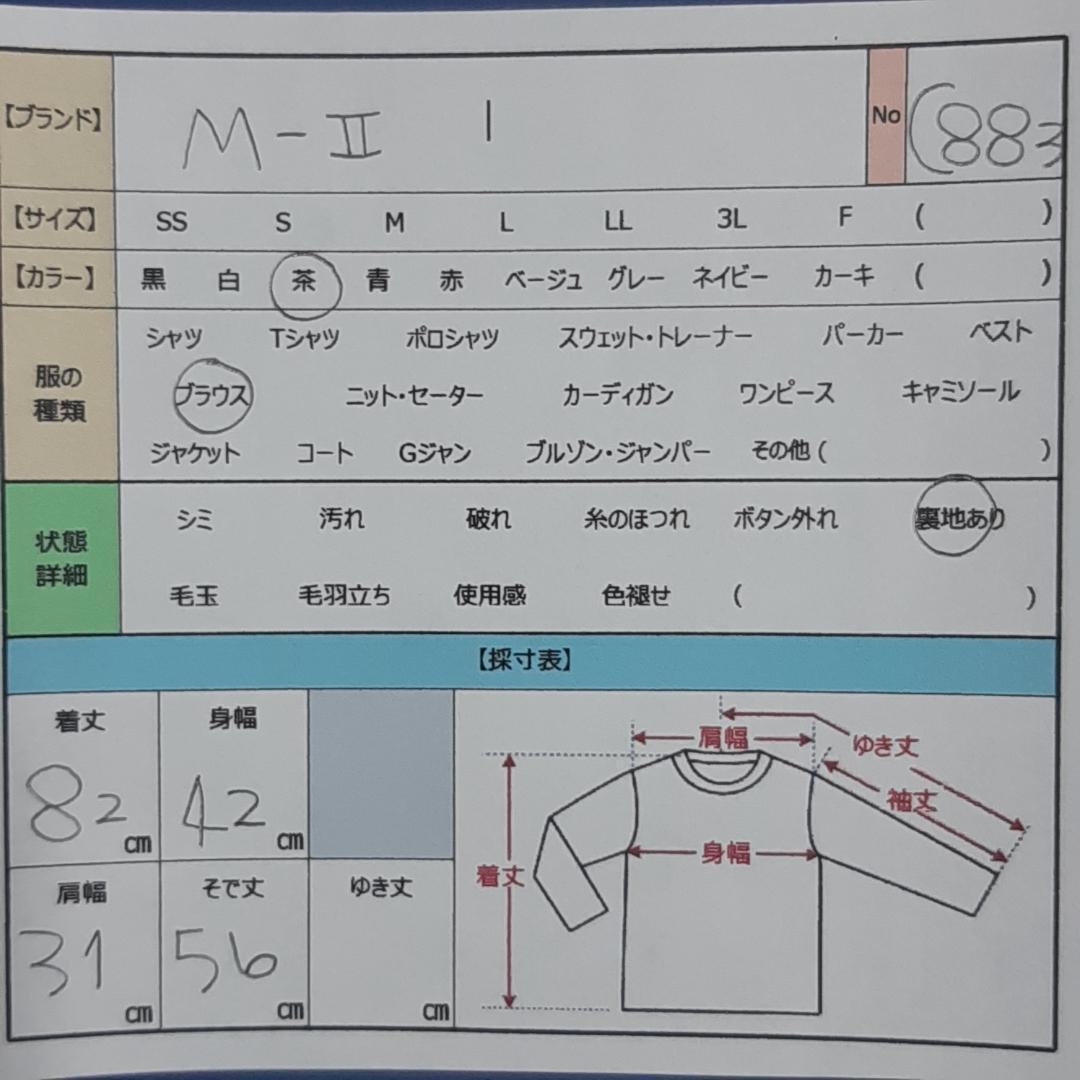 【ブランド】 M-II 1 No (883
【サイズ】 SS S M L LL 3L F ( )
【カラー】 黒 白 茶 青 赤 ベージュ グレー ネイビー カーキ ( )
服の種類
シャツ Tシャツ ポロシャツ スウェット・トレーナー パーカー ベスト
ブラウス ニット・セーター カーディガン ワンピース キャミソール
ジャケット コート Gジャン ブルゾン・ジャンパー その他 ( )
状態詳細
シミ 汚れ 破れ 糸のほつれ ボタン外れ 裏地あり
毛玉 毛羽立ち 使用感 色褪せ ( )
【採寸表】
着丈 身幅
82 cm 42 cm
肩幅 そで丈 ゆき丈
31 cm 56 cm cm
肩幅 ゆき丈
袖丈
身幅
着丈